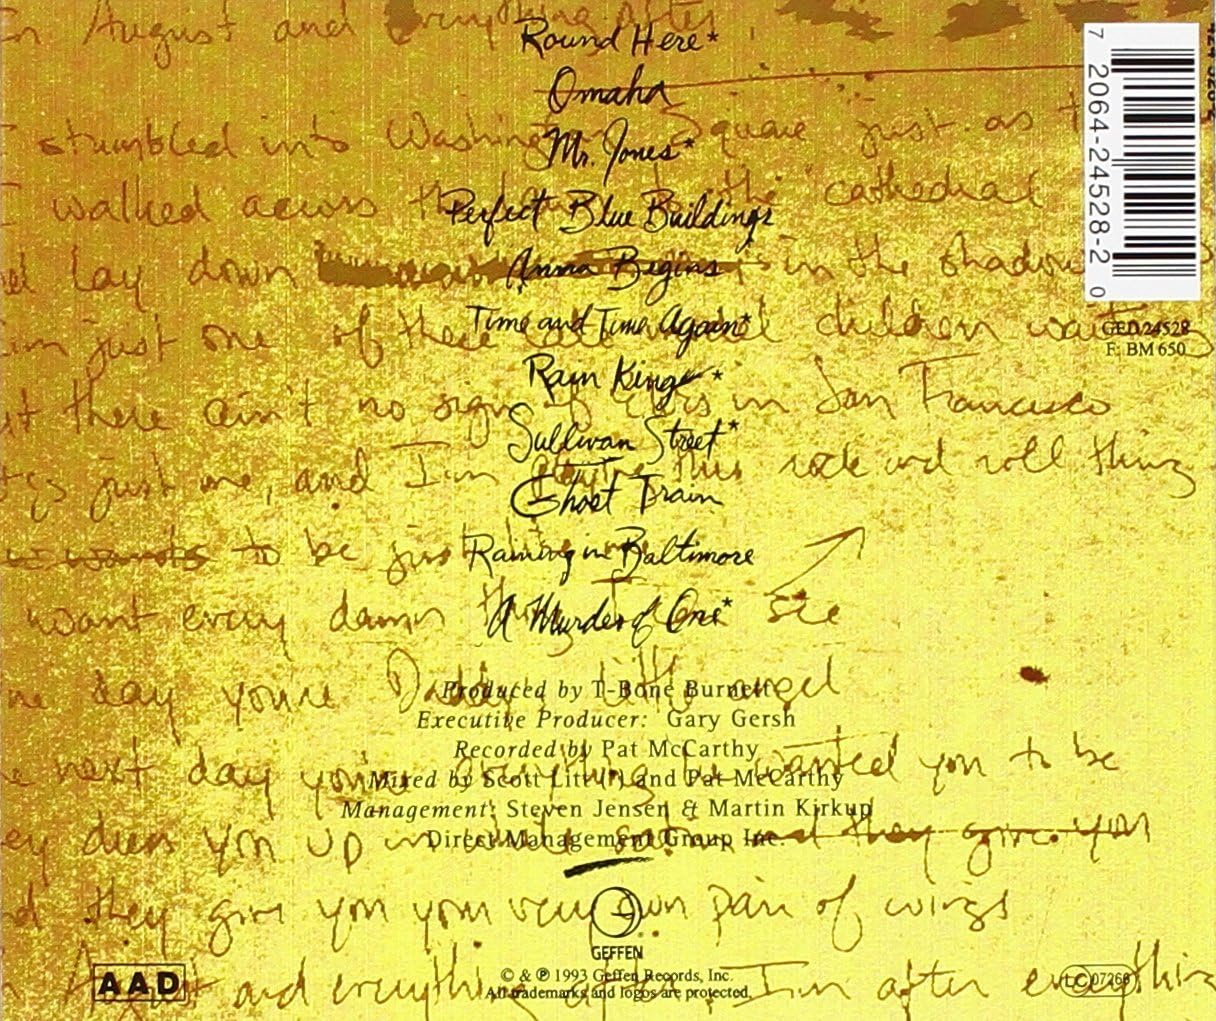 In August and Everything After,
Round Here*
Omaha
I stumbled into Washington Square just as
Mr. Jones*
I walked across the the cathedral
Perfect Blue Buildings
lay down in the shadow
Anna Begins
Time and Time Again*
just one of these late children
Rain King *
there ain't no sign of in San Francisco
Sullivan Street*
just me, and I'm this rock and roll thing
Ghost Train
wants to be just
Raining in Baltimore
want every damn thing I see
A Murder of One*
day you're Daddy's little angel
Produced by T-Bone Burnett
Executive Producer: Gary Gersh
Recorded by Pat McCarthy
next day you're everything he wanted you to be
Mixed by Scott Litt (*) and Pat McCarthy
Management: Steven Jensen & Martin Kirkup
dress you up in white and they give you
Direct Management Group Inc.
they give you your very own pair of wings
GEFFEN
August and everything after I'm after everything
© & ℗ 1993 Geffen Records, Inc.
All trademarks and logos are protected.
AAD
LC 07266
7 2064-24528-2 0
GED 24528
F: BM 650